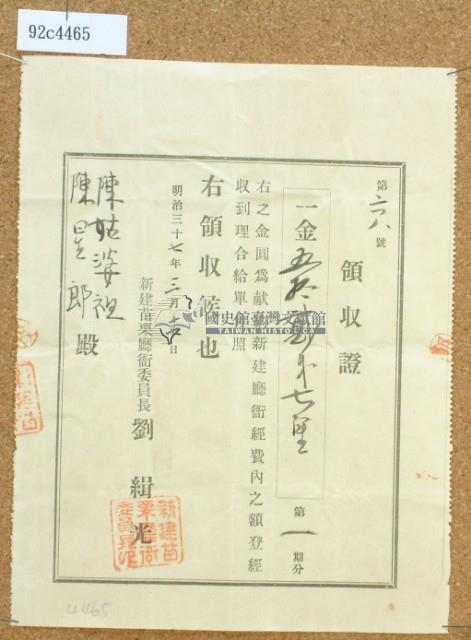 92c4465
第 一六八 號
領收證
一金五拾 七厘
第一期分
右之金圓爲献 新建廳衙經費內之額登經
收到理合給單 照
右領收候也
明治三十七年三月十六日
新建苗栗廳衙委員長 劉緝光
陳姑婆祖
陳 郎 殿
國史館臺灣文獻館
TAIWAN HISTORICA
4465